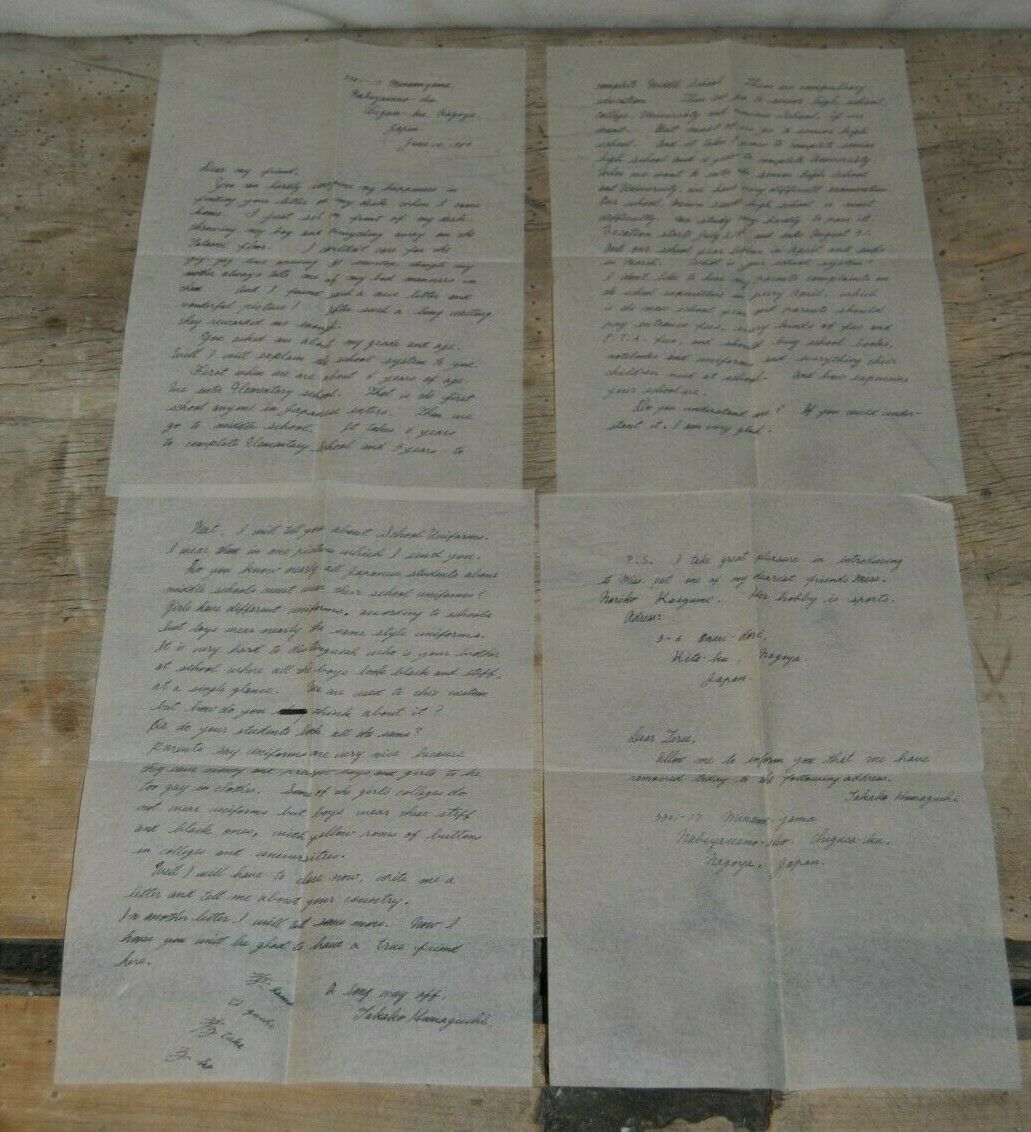 3301-17 Minamiyama,
Nabeyaueno-cho
Chigusa-ku, Nagoya,
Japan
June 10,
Dear my friend,
You can hardly imagine my happiness in
finding your letter on my desk when I came
home. I just sat in front of my desk
throwing my bag and everything away on the
Tatami floor. I couldn't care for the
my
mother always tells me of my bad manners in
them. And I found such a nice letter and
wonderful picture! After such a long waiting
they rewarded me enough.
You asked me about my grade and age.
Well I will explain the school system to you.
First when we are about 6 years of age.
We enter Elementary school. That is the first
school anyone in Japanese enters. Then we
go to middle school. It takes 6 years
to complete Elementary School and 3 years to
complete Middle School. These are compulsory
education. Then we go to senior high school,
college, University and School, if we
want. But most of us go to senior high
school. And it takes 3 years to complete senior
high school and 4 years to complete University
When we want to enter the senior high School
and University, we have very difficult examination.
Our school, senior high school is most
difficultly. We study very hardly to pass it.
Vacation starts July 21th and ends August 31.
And our school year begins in April and ends
in March. What is your school system?
I don't like to hear my parents complaints on
the school expenditures in every April, which
is the new school year and parents should
pay entrance fees, every kinds of fees and
P.T.A. fees, and should buy school books,
notebooks and uniforms and everything their
children need at school. And how expensive
your school are.
Do you understand me? If you could under-
stand it, I am very glad.
Next, I will tell you about School Uniforms.
I wear them in one picture which I send you.
Do you know nearly all Japanese students above
middle schools must wear their school uniforms?
Girls have different uniforms, according to schools
but boys wear nearly the same style uniforms.
It is very hard to distinguish who is your brother
at school where all the boys look black and stiff,
at a single glance. We are used to this custom
but how do you think about it?
Or do your students look all the same?
Parents say uniforms are very nice because
they save money and prevent boys and girls to be
too gay in clothes. Some of the girls colleges do
not wear uniforms but boys wear these stiff
and black ones, with yellow rows of buttons
in colleges and universities.
Well I will have to close now, write me a
letter and tell me about your country.
In another letter I will tell some more. Now I
hope you will be glad to have a true friend
here.
A long way off,
Takako Hamaguchi.
hama
口 guchi
taka
子 ko
P.S. I take great pleasure in introducing
to Miss. pat one of my dearest friends Miss.
Noriko Her hobby is sports.
Adress:
3-6 Ozone-dori,
Kita-ku, Nagoya
Japan
Dear
Allow me to inform you that we have
removed today to the following address.
Takako Hamaguchi.
3301-17 Minami-yama
Nabeyaueno-cho Chigusa-ku,
Nagoya, Japan.